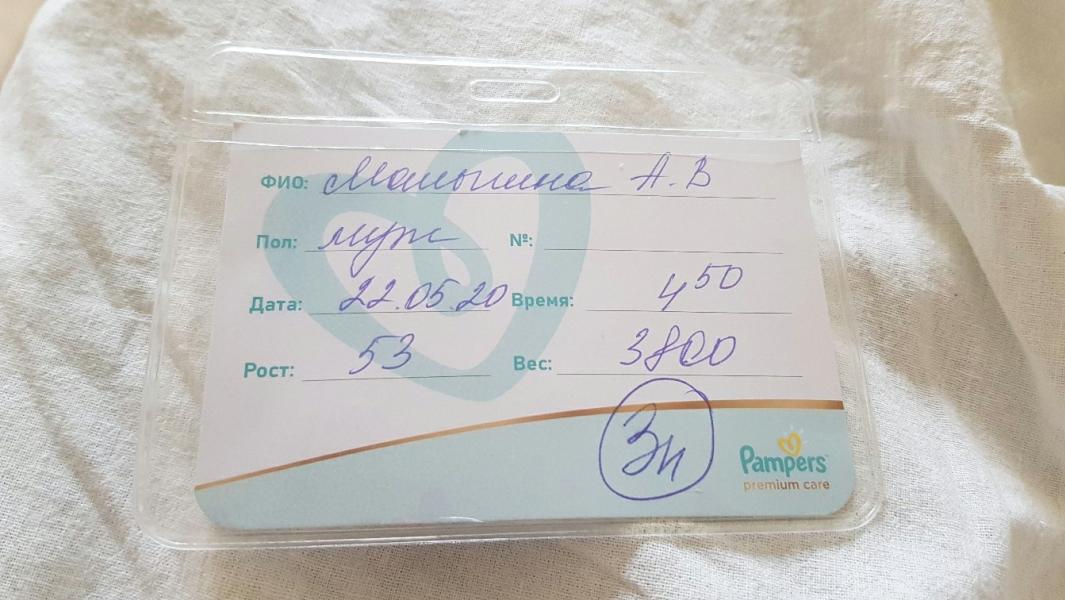 ФИО: Малышна А.В
Пол: муж №:
Дата: 22.05.20 Время: 4⁵⁰
Рост: 53 Вес: 3800
Зп
Pampers
premium care